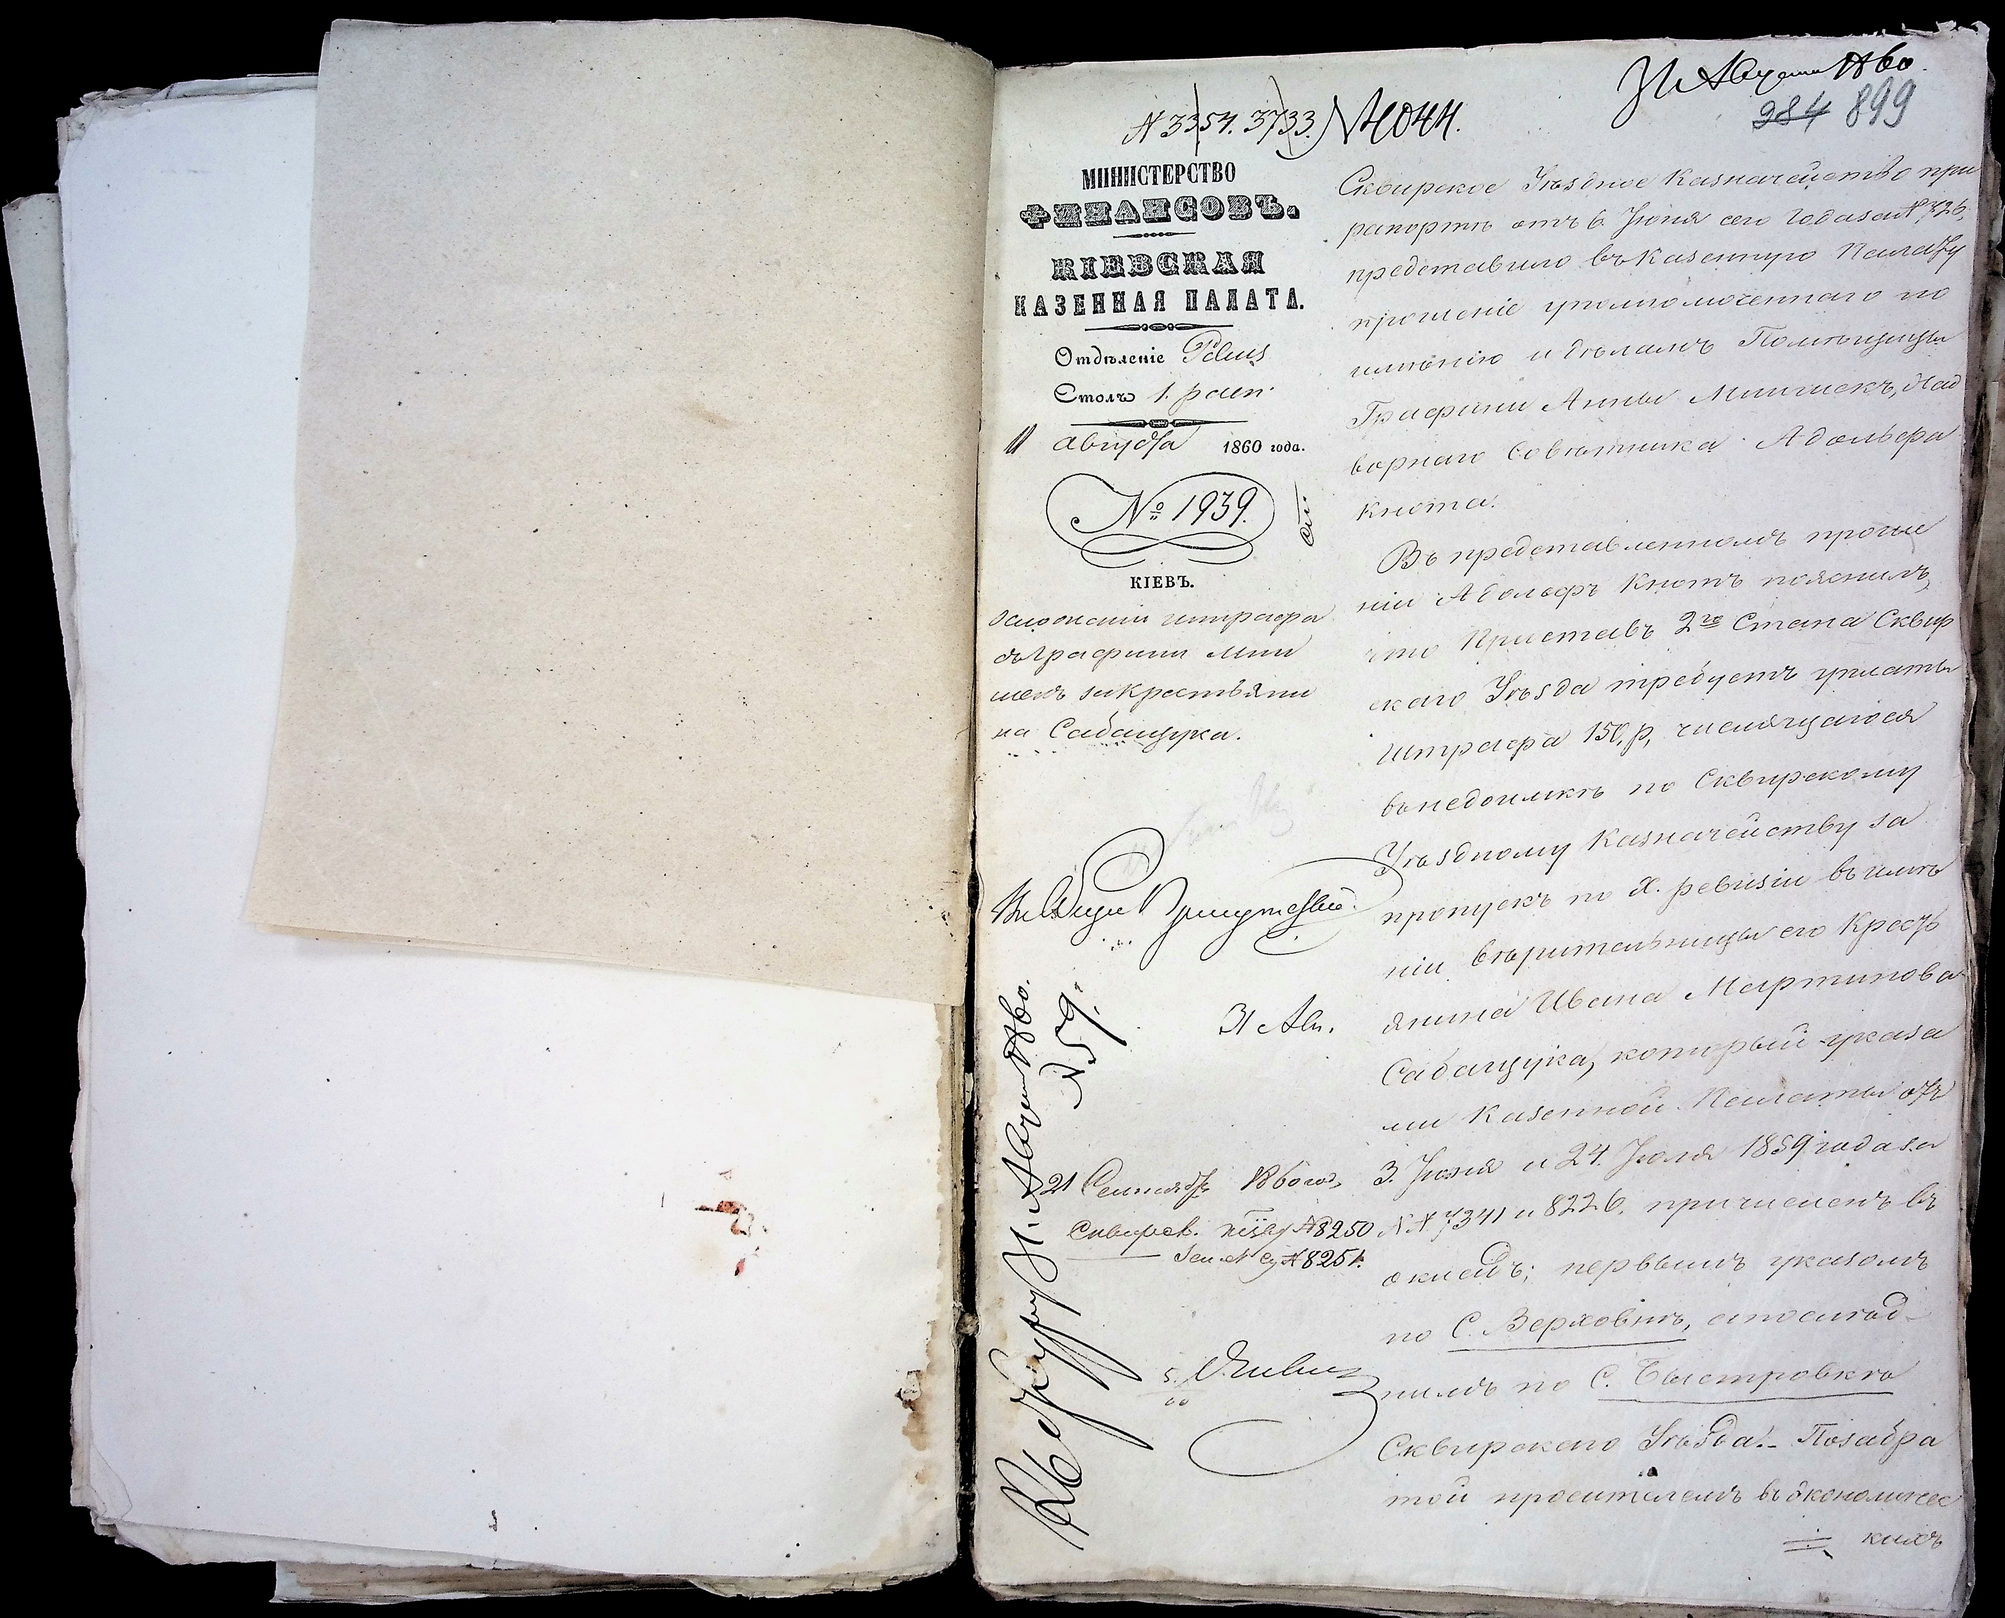 31 Августа 1860.
284 899
N 3354. 3733. N 4044.
МИНИСТЕРСТВО
ФИНАНСОВЪ.
КІЕВСКАЯ
КАЗЕННАЯ ПАЛАТА.
Отдѣленіе
Столъ 1.
11 августа 1860 года.
№ 1939.
КІЕВЪ.
о сложеніи штрафа
съ Графини Мни
шекъ за Крестьяни
на Сабащука.
31 Авг.
N 59.
21 Сентября 1860 год.
Сквирск. N 8250
N 8251.
Сквирское Уѣздное Казначейство при
рапортѣ отъ 6 Іюня сего года за N 726,
представило въ Казенную Палату
прошеніе уполномоченнаго по
имѣнію и дѣламъ Помѣщицы
Графини Анны Мнишекъ, Над
ворнаго Совѣтника Адольфа
Кнота.
Въ представленномъ проше
ніи Адольфъ Кнотъ пояснилъ,
что Приставъ 2го Стана Сквир
скаго Уѣзда требуетъ уплаты
штрафа 150 р, числящагося
въ недоимкѣ по Сквирскому
Уѣздному Казначейству за
пропускъ по X. ревизіи въ имѣ
ніи вѣрительницы его Кресть
янина Ивана Мартинова
Сабащука, который указа
ми Казенной Палаты отъ
3. Іюля и 24. Іюля 1859 года за
N N 7341 и 8226, причисленъ въ
окладъ; первымъ указомъ
по С. Верховнѣ, а послѣд-
нимъ по С. Быстровкѣ
Сквирскаго Уѣзда. - По забра
той просителемъ въ экономичес
кихъ